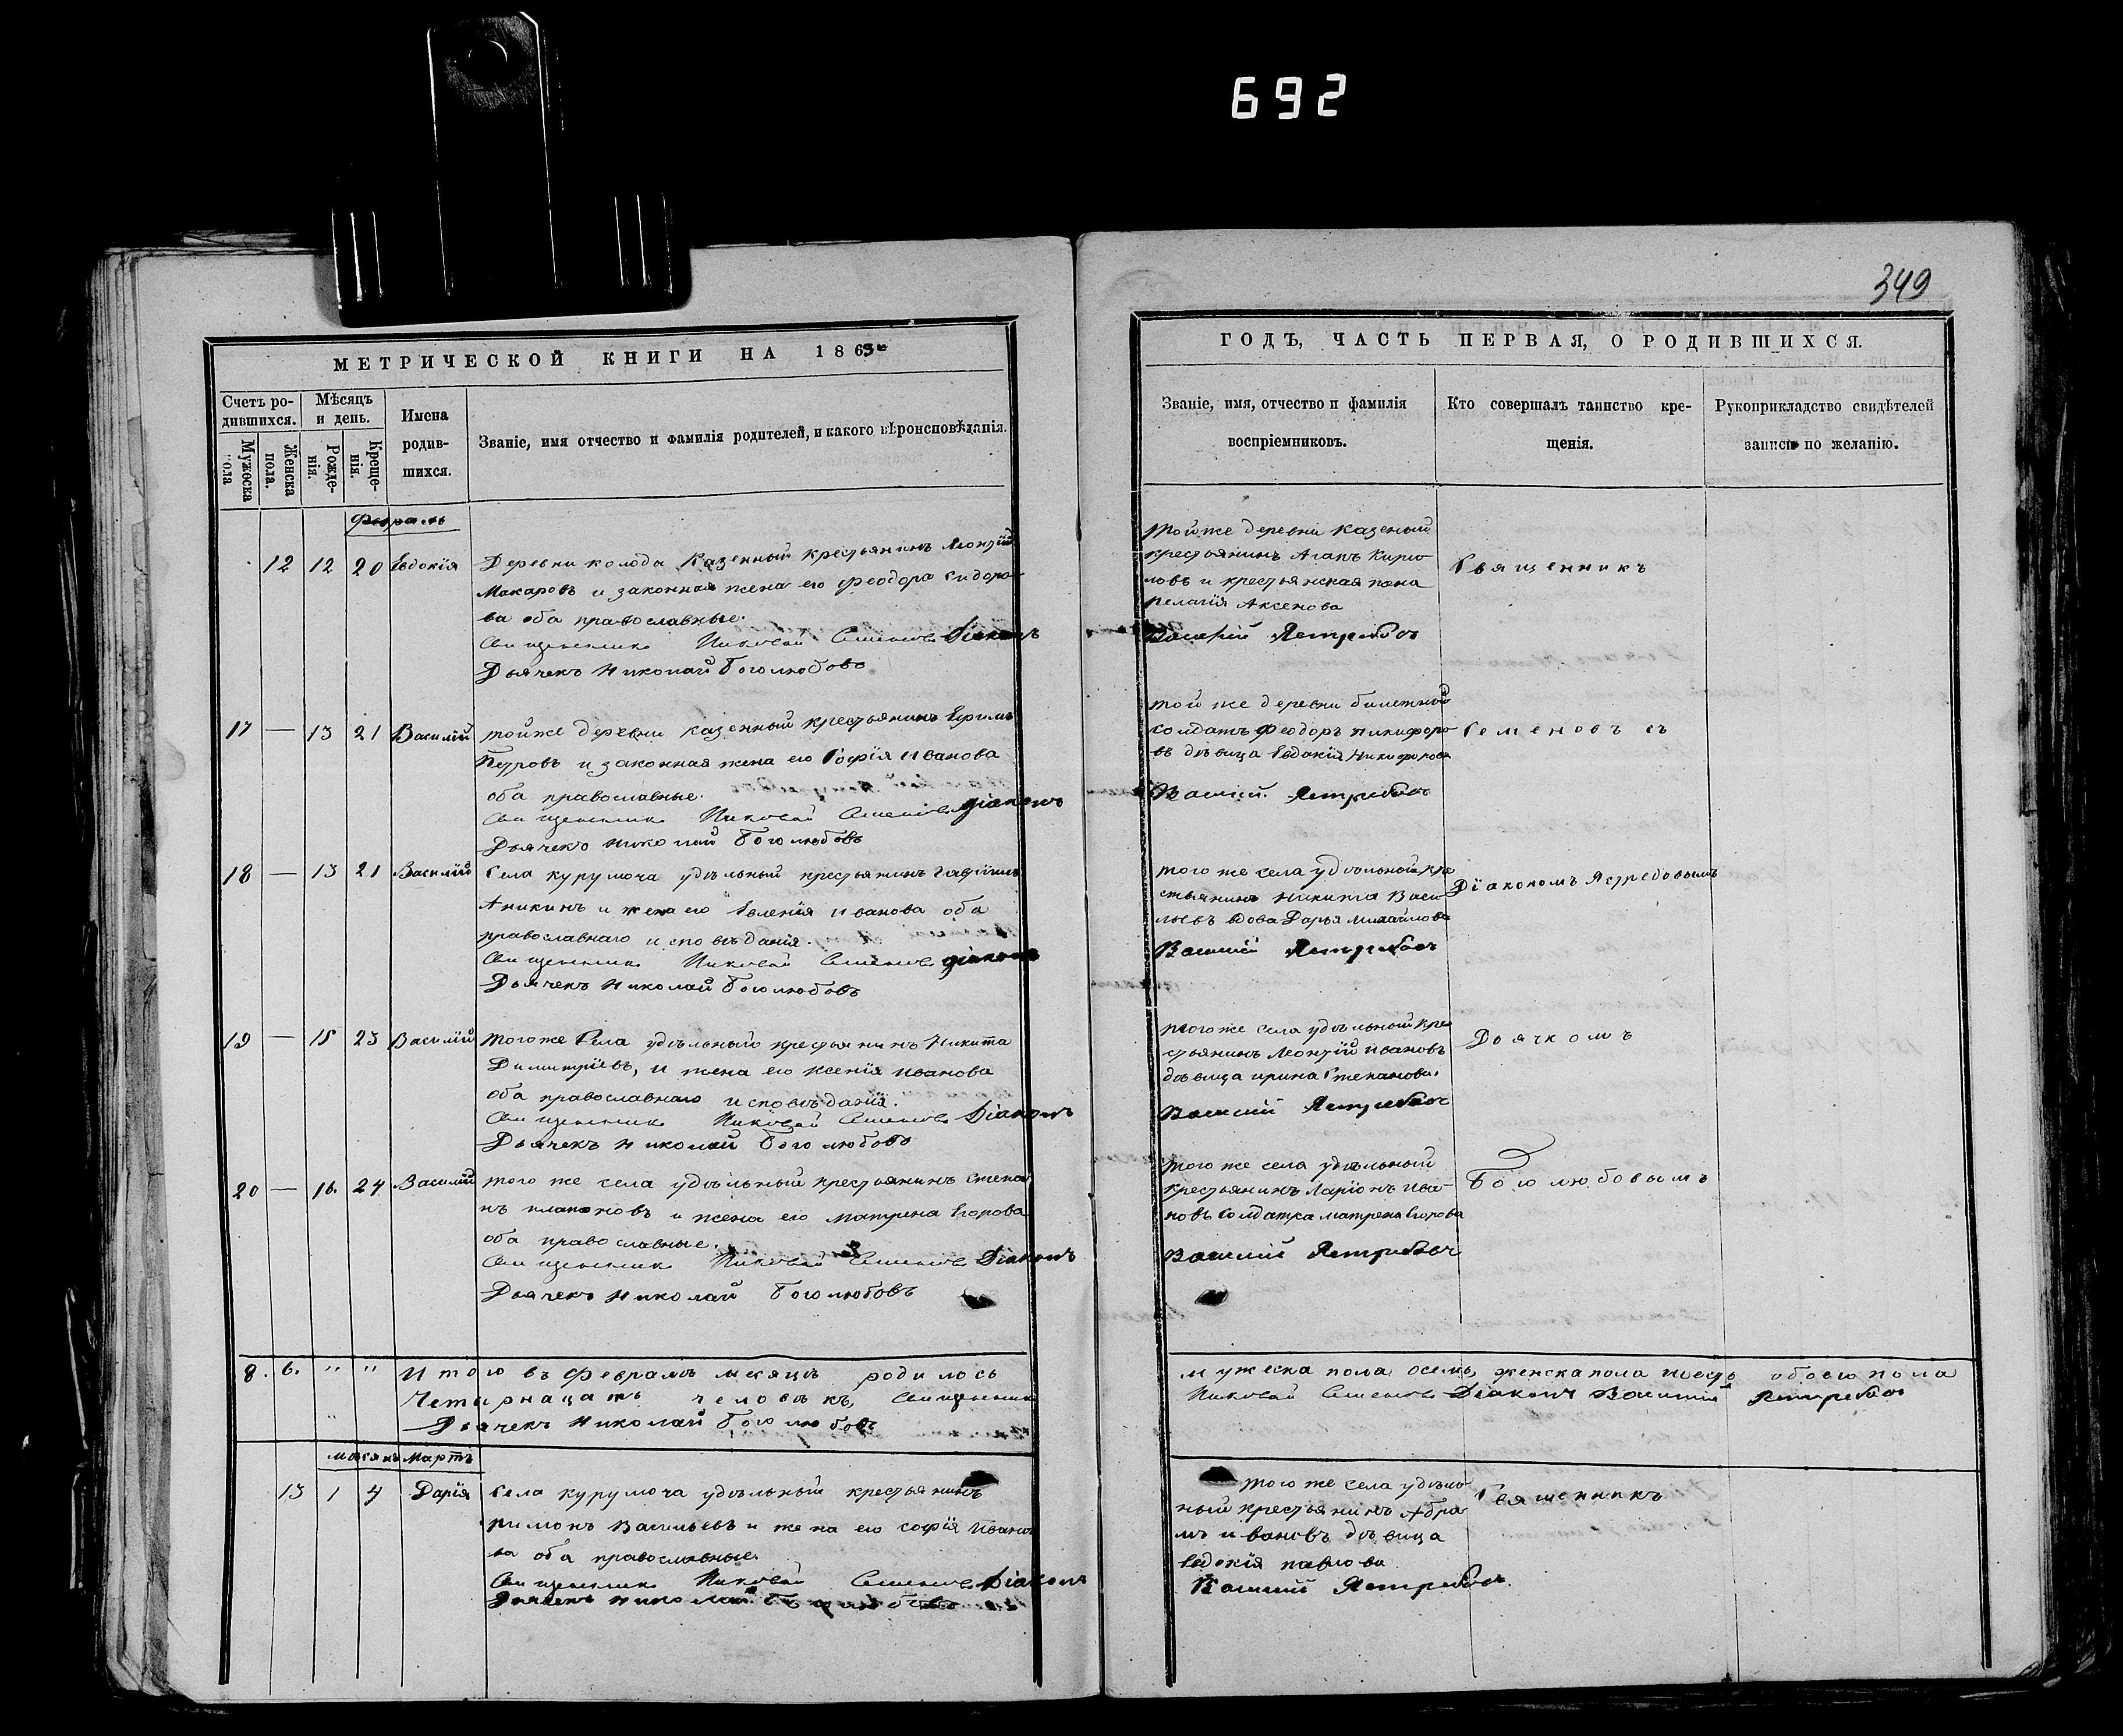 692
349
МЕТРИЧЕСКОЙ КНИГИ НА 1863й
ГОДЪ, ЧАСТЬ ПЕРВАЯ, О РОДИВШИХСЯ.
Счетъ ро-
дившихся.
Мужеска пола
Женска пола.
Мѣсяцъ
и день.
Рожде-
нія.
Креще-
нія.
Имена
родив-
шихся.
Званіе, имя отчество и фамилія родителей, и какого вѣроисповѣданія.
Званіе, имя, отчество и фамилія
воспріемниковъ.
Кто совершалъ таинство кре-
щенія.
Рукоприкладство свидѣтелей
записи по желанію.
Февраль
12 12 20 Евдокія Деревни колода Казенный крестьянинъ Леонтій
Макаровъ и законная жена его Феодора Сидоро
ва оба православные.
Священникъ Николай Семеновъ Діаконъ
Дьячекъ Николай Боголюбовъ
Той же деревни казеный
крестьянинъ Агапъ Кирило
новъ и крестьянская жена
пелагія Аксенова
Василій Ястребовъ
Священникъ
17 — 13 21 Василій той же деревни казенный крестьянинъ Ефимъ
Петровъ и законная жена его Софія Иванова
оба православные.
Священникъ Николай Семеновъ Діаконъ
Дьячекъ Николай Боголюбовъ
той же деревни билетный
солдатъ Феодоръ никифоро
въ дѣвица Евдокія Никифорова
Василій Ястребовъ
Семеновъ съ
18 — 13 21 Василій Села курумоча удѣльный крестьянинъ Гавріилъ
Аникинъ и жена его Евгенія Иванова оба
православнаго исповѣданія.
Священникъ Николай Семеновъ діаконъ
Дьячекъ Николай Боголюбовъ
того же села удѣльный кре
стьянинъ Никита Васи
льевъ вдова Дарья михайлова
Василій Ястребовъ
Діакономъ Ястребовымъ
19 — 15 23 Василій того же Села удѣльный крестьянинъ Никита
Димитріевъ, и жена его Ксенія Иванова
оба православнаго исповѣданія.
Священникъ Николай Семеновъ Діаконъ
Дьячекъ Николай Боголюбовъ
того же села удѣльный кре
стьянинъ Леонтій Ивановъ
дѣвица ирина Степанова.
Василій Ястребовъ
Дьячкомъ
20 — 16. 24 Василій того же села удѣльный крестьянинъ Степа
нъ платоновъ и жена его матрена Егорова
оба православные.
Священникъ Николай Семеновъ Діаконъ
Дьячекъ Николай Боголюбовъ
того же села удѣльный
крестьянинъ Ларіонъ Ива-
новъ Солдатка матрена Егорова
Василій Ястребовъ
Боголюбовымъ
8. 6. " " Итого въ Февралѣ мѣсяцѣ родилось
мужеска пола осемь, женска пола шесть обоего пола
Четырнацать человѣкъ, Священникъ
Николай Семеновъ Діаконъ Василій Ястребовъ
Дьячекъ Николай Боголюбовъ
мѣсяцъ Мартъ
13 1 4 Дарія Села курумоча удѣльный крестьянинъ
Филимонъ Васильевъ и жена его софія Ивано
ва оба православные.
Священникъ Николай Семеновъ Діаконъ
Дьячекъ Николай Боголюбовъ
того же села удѣль
ный крестьянинъ Абра
мъ ивановъ дѣвица
Евдокія павлова
Василій Ястребовъ.
Священникъ